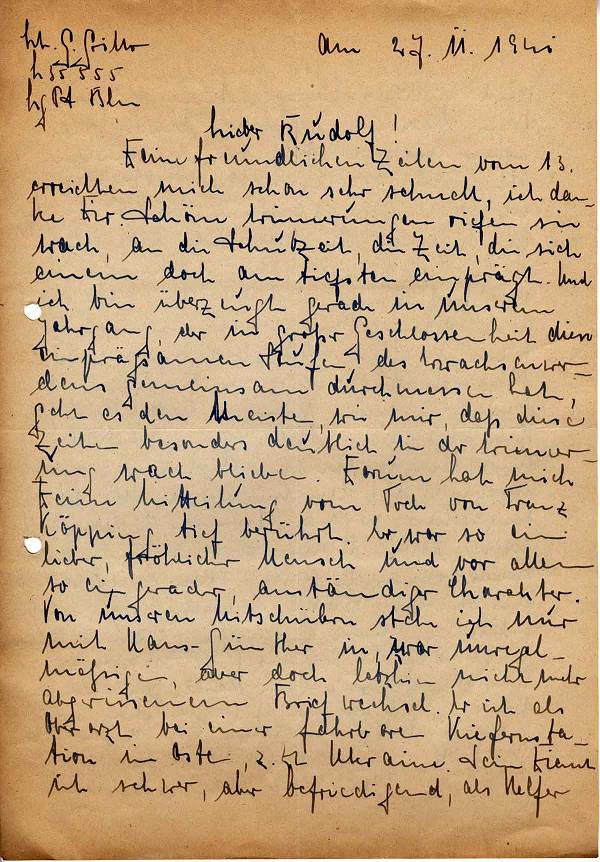 Am 27. 11. 194
Lieber Rudolf!
Deine freundlichen Zeilen vom 13.
erreichten mich schon sehr schnell, ich dan-
ke Dir. Schöne Erinnerungen riefen sie
wach, an die Schulzeit, die Zeit, die sich
einem doch am tiefsten einprägt. Und
ich bin überzeugt gerade in unserem
Jahrgang, der in großer Geschlossenheit diese
einprägsamen Stufen des Erwachsenwer-
dens gemeinsam durchmessen hat,
geht es den Meisten, wie mir, daß diese
Zeiten besonders deutlich in der Erinner-
ung wach blieben. Darum hat mich
Deine Mitteilung vom Tode von Franz
Köpping tief berührt. Er war so ein
lieber, fröhlicher Mensch und vor allem
so ein gerader, anständiger Charakter.
Von unseren Mitschülern stehe ich nur
mit Hans-Günther in, zwar unregel-
mäßigem, aber doch letzthin nicht mehr
abgerissenem Briefwechsel. Er ist als
Oberarzt bei einer fahrbaren Kieferesta-
tion im Osten, z. Zt Ukraine. Sein Dienst
ist schwer, aber befriedigend, als Helfer